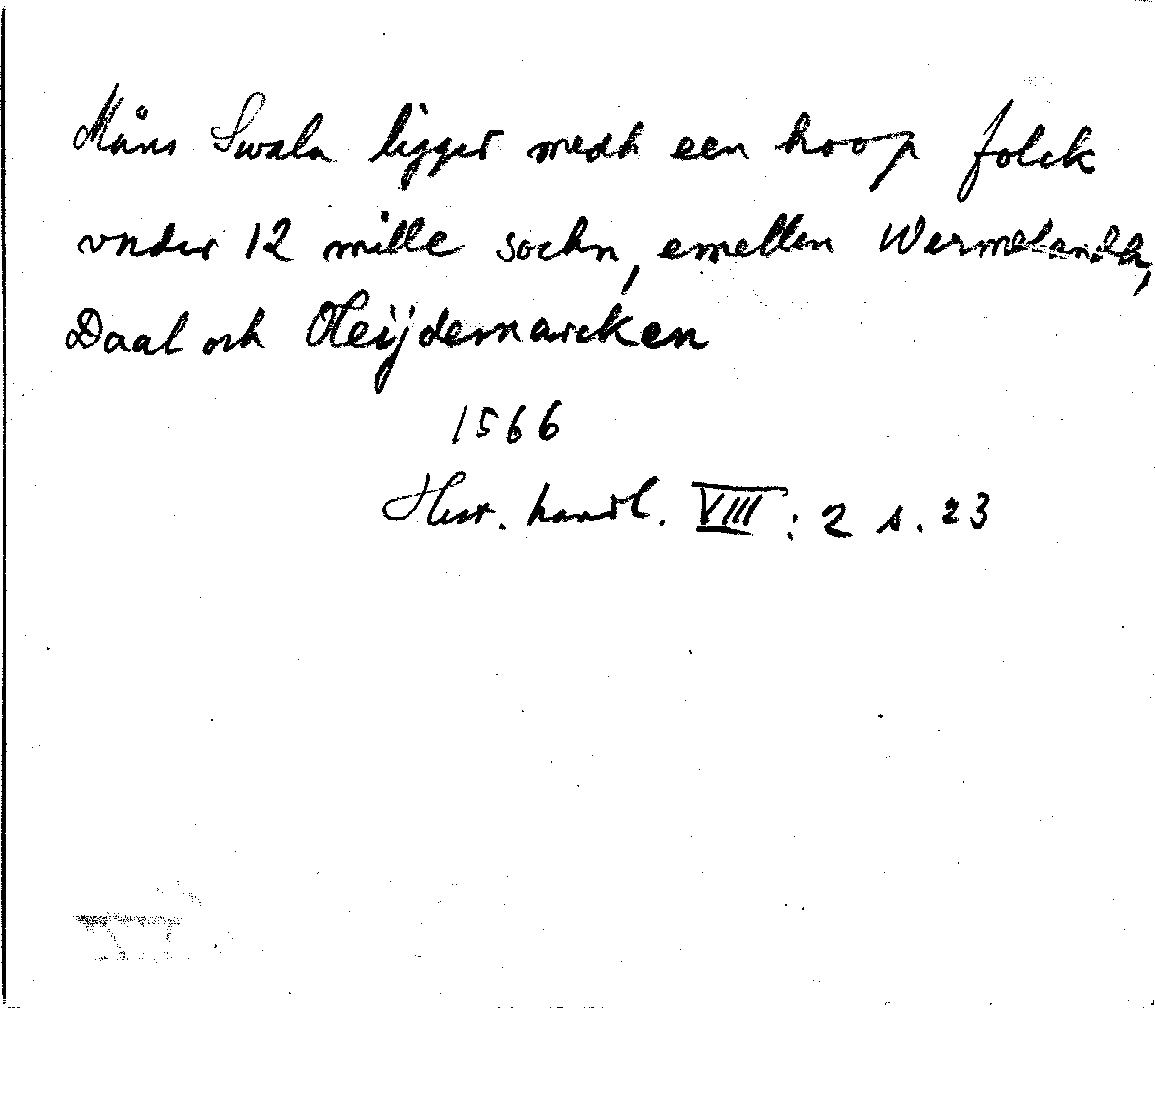 Måns Swala ligger medh een hoop folck
vnder 12 mille sochn, emellen Wermelandh,
Daal och Heijdemarcken
1566
Hist. handl. VIII: 2 s. 23